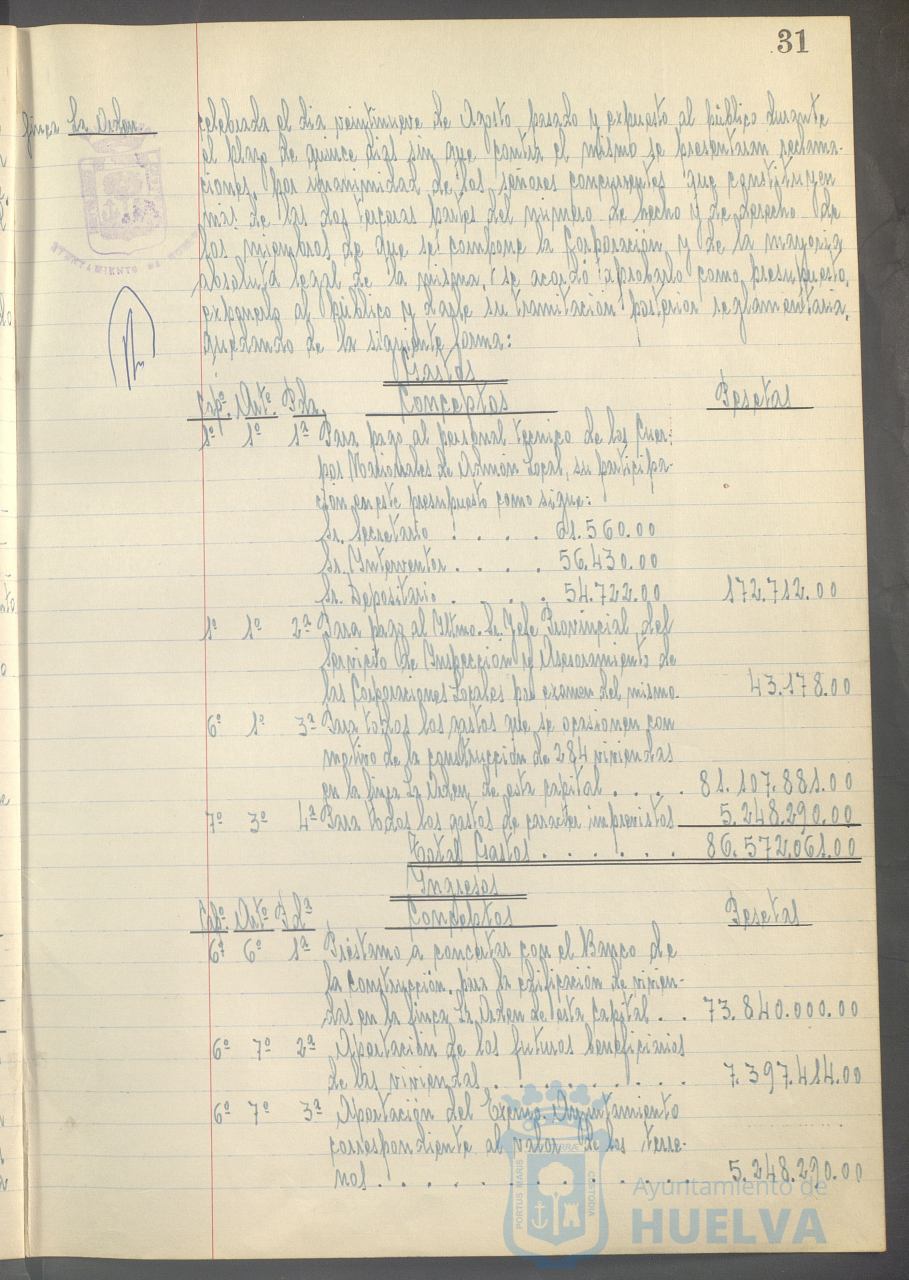 31
finca La Orden.
celebrada el dia veintinueve de Agosto pasado y expuesto al público durante
el plazo de quince dias sin que contra el mismo se presentaran reclama-
ciones, por unanimidad de los señores concurrentes que constituyen
más de las dos terceras partes del número de hecho y de derecho de
los miembros de que se compone la Corporación y de la mayoria
absoluta legal de la misma, se acordó aprobarlo como presupuesto,
exponerlo al público y darle su tramitación posterior reglamentaria,
quedando de la siguiente forma:
Gastos
Capº. Artº. Pda. Conceptos Pesetas
1º 1º 1ª Para pago al personal tecnico de los Cuer-
pos Nacionales de Admón Local, su participa-
ción en este presupuesto como sigue:
Sr. Secretario . . . . 61.560.00
Sr. Interventor . . . . 56.430.00
Sr. Depositario . . . . 54.722.00 172.712.00
1º 1º 2ª Para pago al Iltmo. Sr. Jefe Provincial del
Servicio de Inspección y Asesoramiento de
las Corporaciones Locales por examen del mismo. 43.178.00
6º 1º 3ª Para todos los gastos que se ocasionen con
motivo de la construcción de 284 viviendas
en la finca La Orden de esta capital . . . . 81.107.881.00
7º 3º 4ª Para todos los gastos de caracter imprevistos 5.248.290.00
Total Gastos . . . . . . 86.572.061.00
Ingresos
Capº. Artº. Pdª Conceptos Pesetas
6º 6º 1ª Préstamo a concertar con el Banco de
la construcción, para la edificación de vivien-
das en la finca La Orden de esta capital . . 73.840.000.00
6º 7º 2ª Aportación de los futuros beneficiarios
de las viviendas . . . . . . . . . 7.397.414.00
6º 7º 3ª Aportación del Excmo. Ayuntamiento
correspondiente al valor de los terre-
nos . . . . . . . . . . . . . 5.248.290.00
PORTUS MARIS
CUSTODIA
Ayuntamiento de
HUELVA